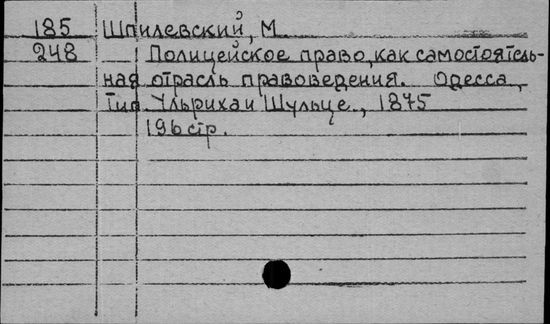 185 Шпилевский, М
248 Полицейское право, как самостоятель-
ная отрасль правоведения. Одесса,
Тип. Ульриха и Шульце, 1875
196 стр.